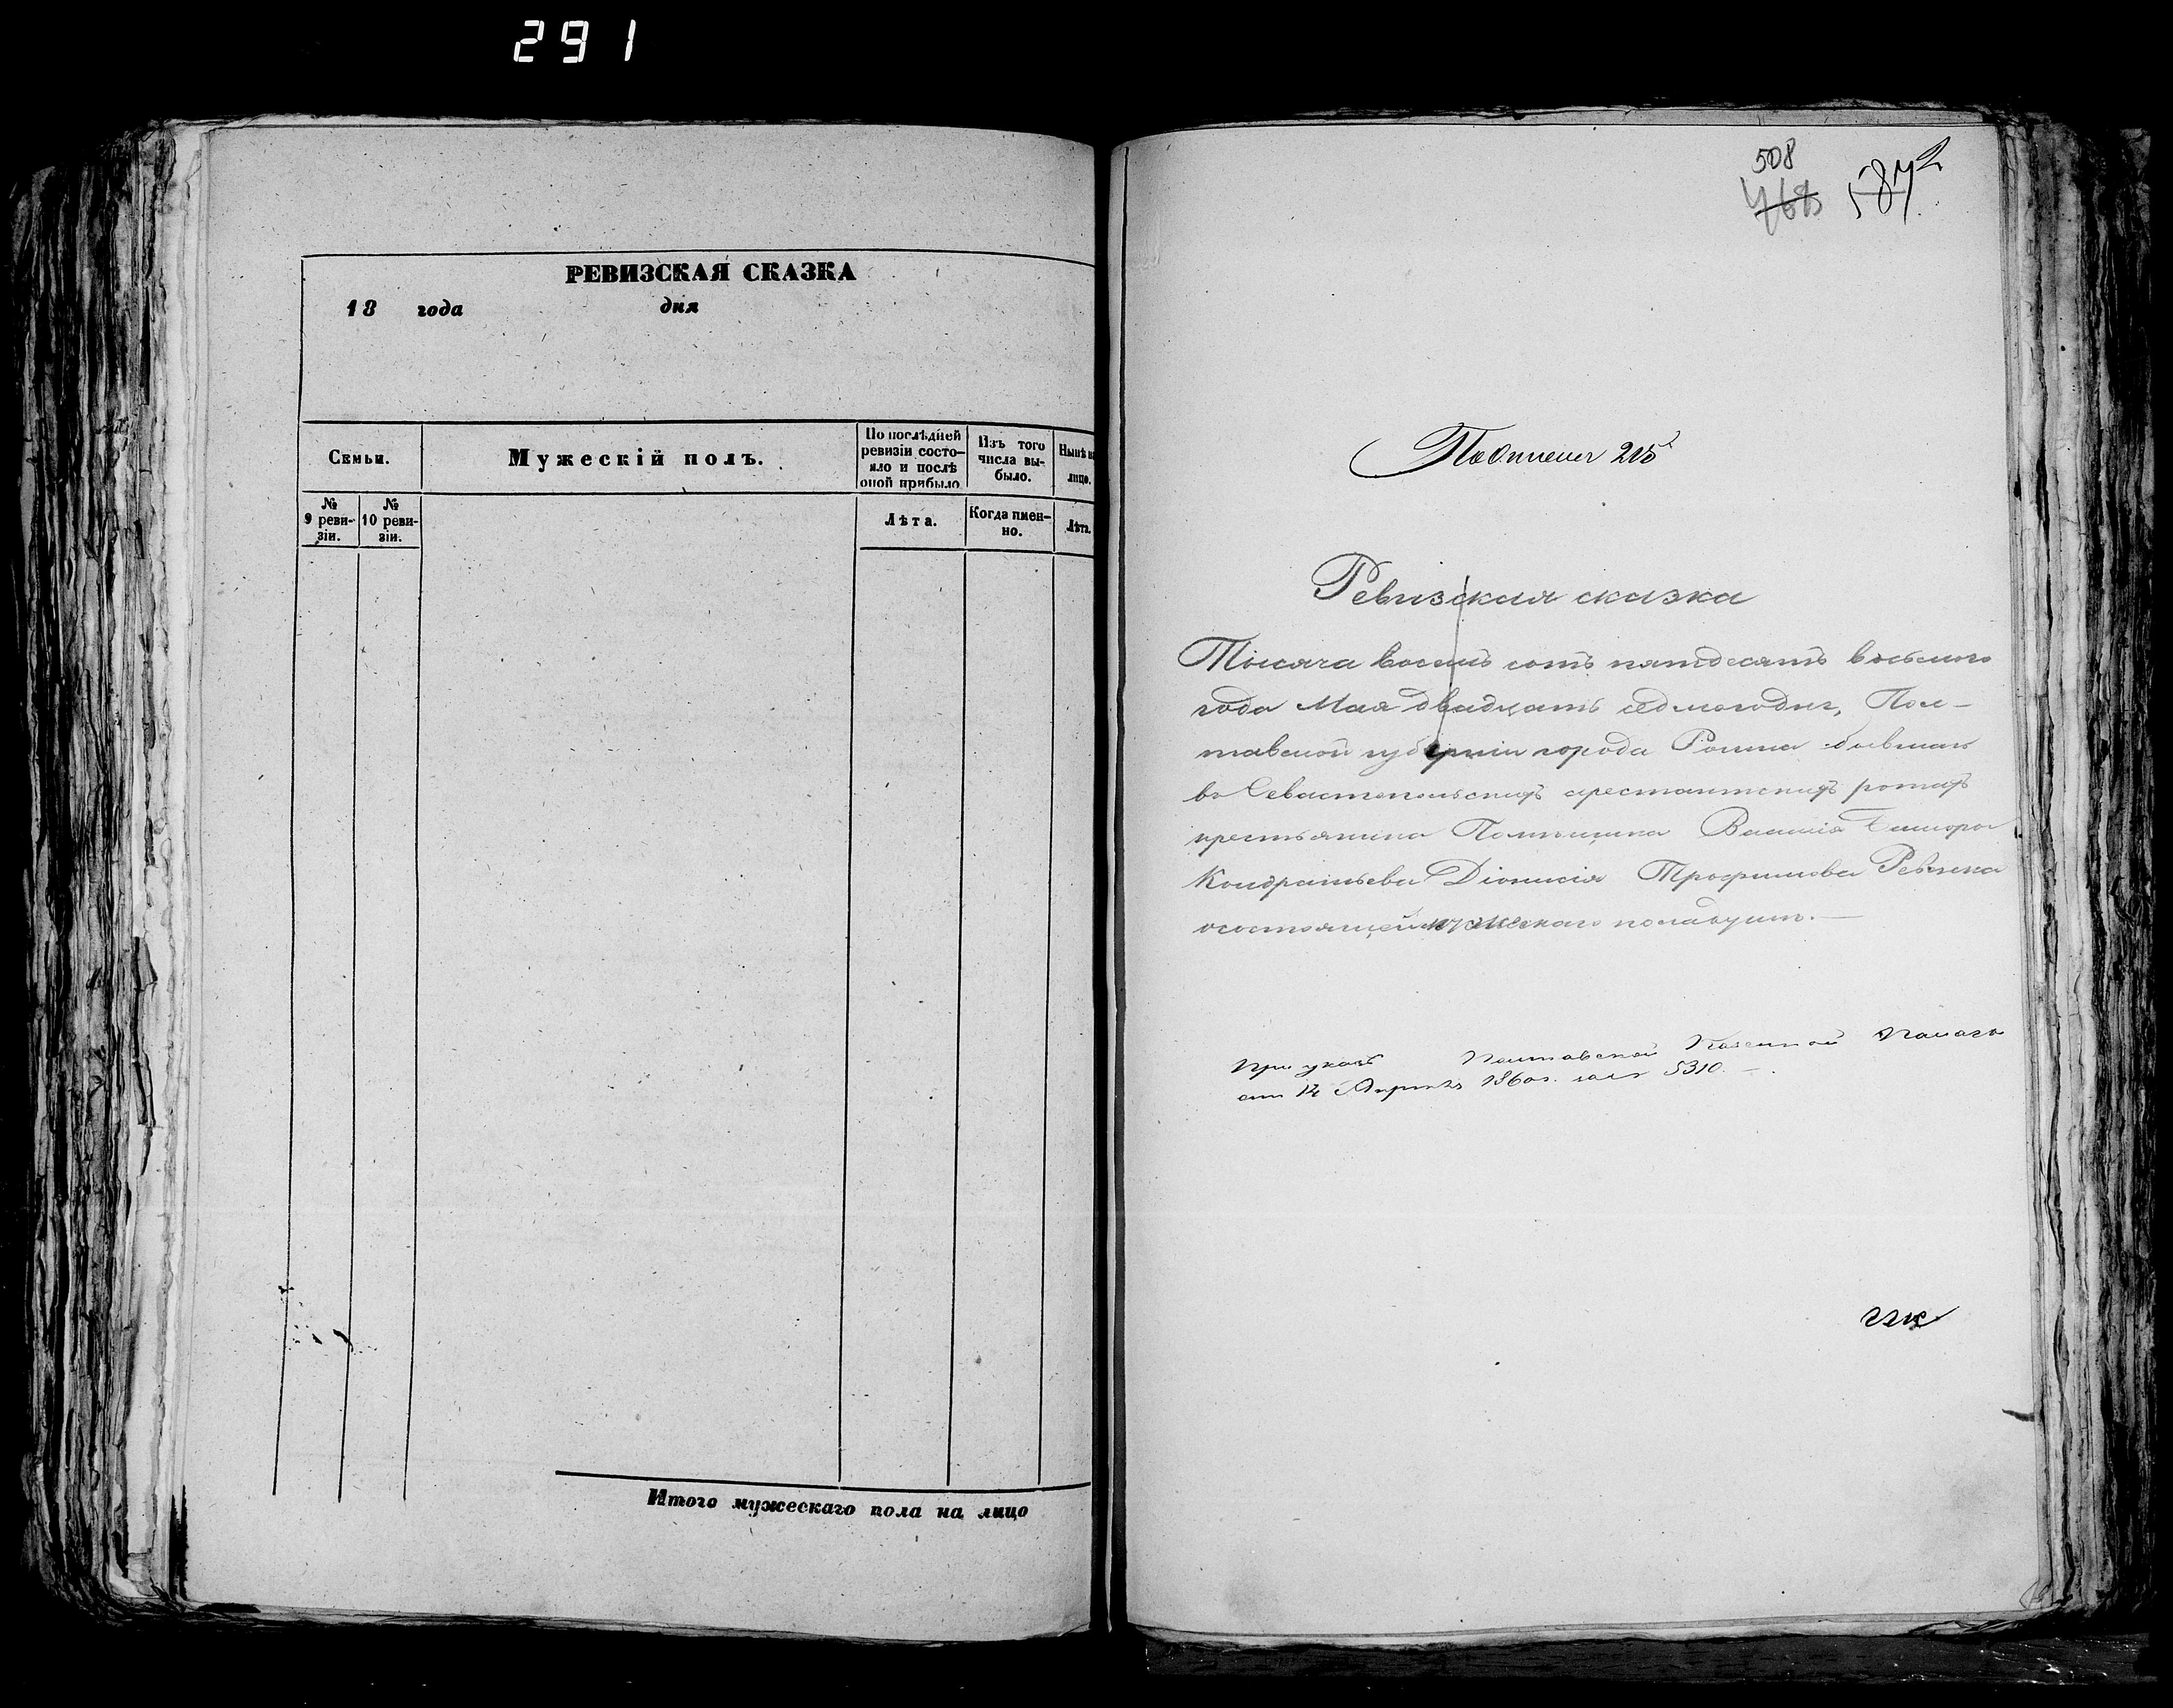 291
РЕВИЗСКАЯ СКАЗКА
18 года дня
Семьи.
Мужескій полъ.
По послѣдней
ревизіи состо-
яло и послѣ
оной прибыло
Изъ того
числа вы-
было.
Нынѣ на
лицо.
№
9 реви-
зіи.
№
10 реви-
зіи.
Лѣта.
Когда имен-
но.
Лѣта.
Итого мужескаго пола на лицо
508
Ревизская сказка
Тысяча восемь сотъ пятдесятъ восьмого
года Мая двадцать седмогодня, Пол-
тавской губерніи города Ромна бывшаго
въ Севастопольскихъ арестантскихъ ротахъ
крестьянина Помѣщика Василія
Кондратьева Діонисія Трофимова Ревенка
осостоящей мужескаго пола душъ.
При указѣ Полтавской Казенной Палаты
отъ 12 Апрѣля 1860 г. за № 5310.